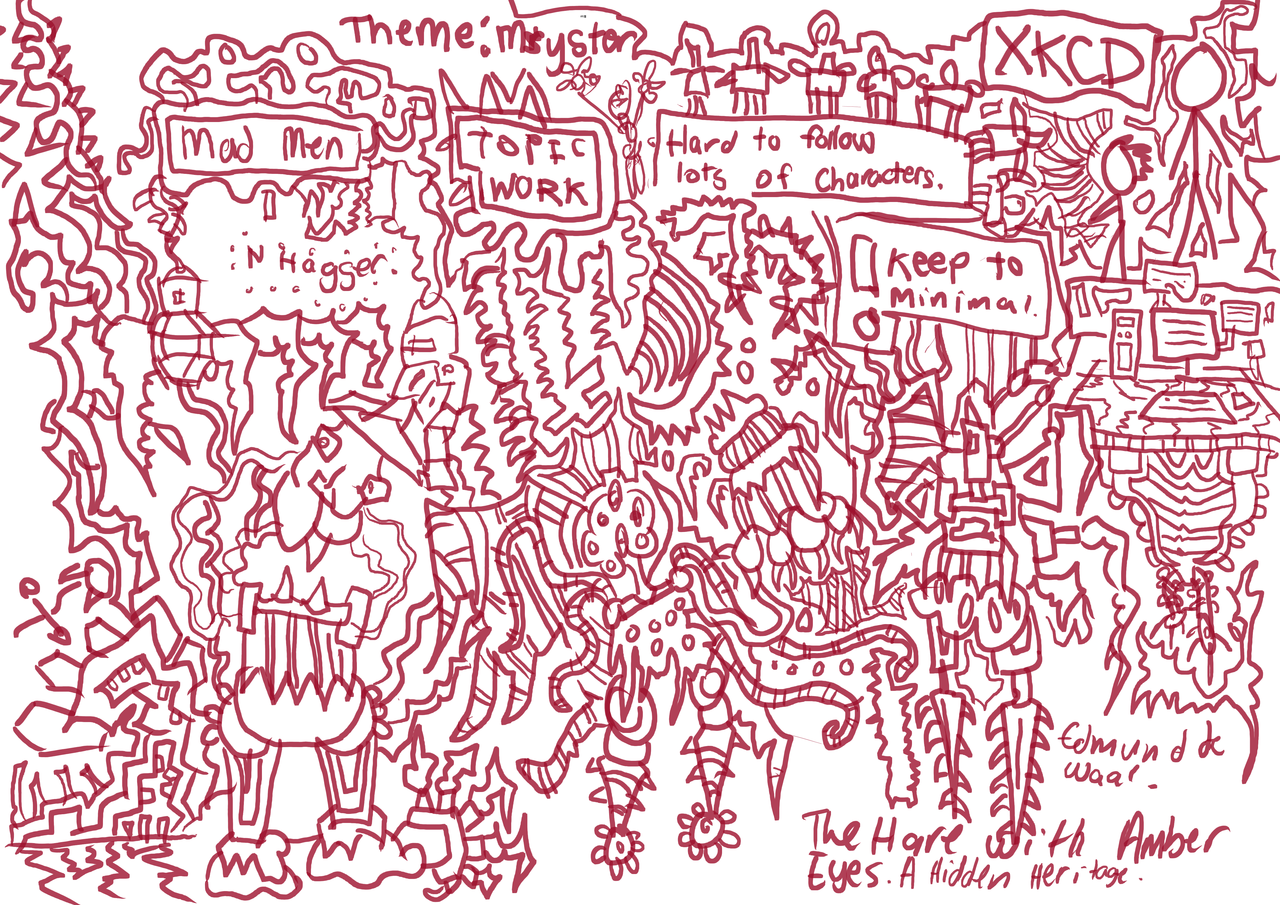 Theme: Msyster
XKCD
Mad Men
TOPIC
WORK
Hard to follow
lots of Characters.
N Hagger.
! Keep to
Minimal.
Edmund de
Waal.
The Hare with Amber
Eyes. A Hidden Heritage.